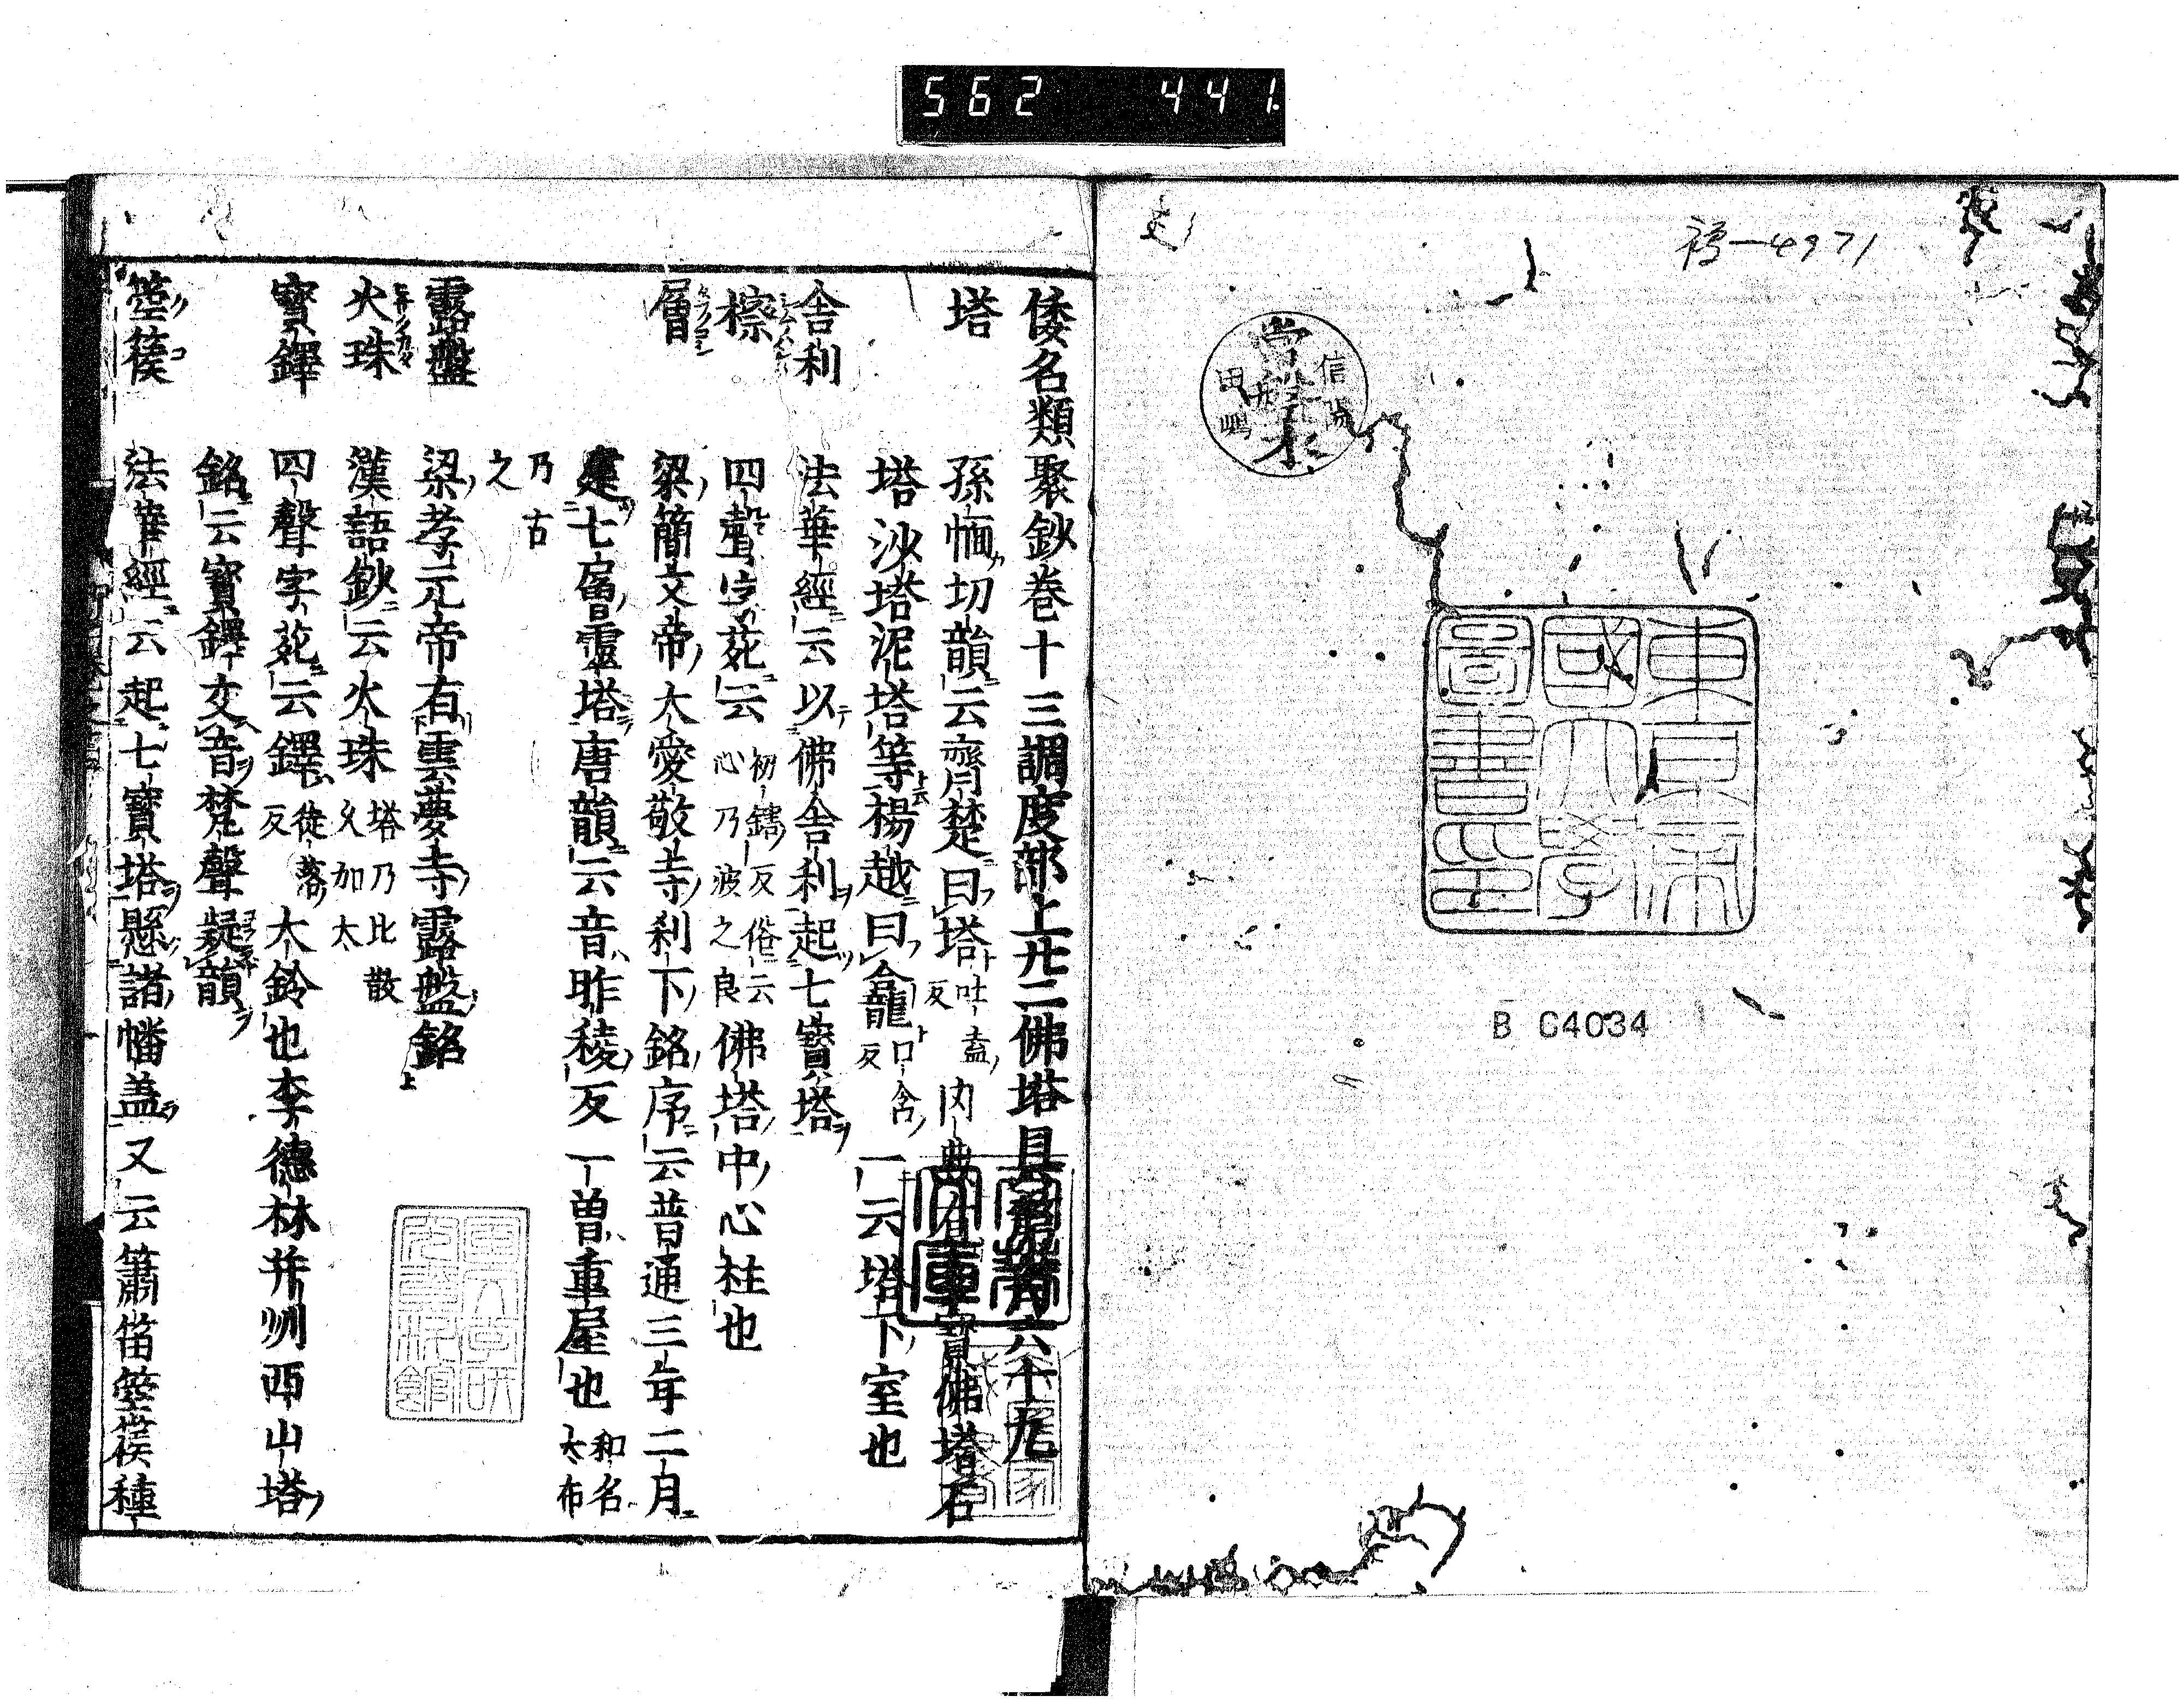 562 441.
禱一4971
信
田
東京帝
國大學
圖書印
B C4034
倭名類聚鈔巻十三調度部上廿二佛塔具第百六十九
塔 孫愐切韻云齊楚曰塔 吐盍反 内典有 寶佛塔石
塔沙塔泥塔等楊越曰龕 口含反 一云塔下室也
舎利 法華經云以佛舎利起七寶塔
檫 四聲字苑云 初鎋反俗云 心乃波之良 佛塔中心柱也
層 梁簡文帝大愛敬寺刹下銘序云普通三年二月
建七層靈塔唐韻云音昨稜反一曽重屋也 和名 太布
乃古
之
露盤 梁孝元帝有雲夢寺露盤銘
火珠 漢語鈔云火珠 塔乃比散 久加太
寶鐸 四聲字苑云鐸 徒落反 大鈴也李德林并州西山塔
銘云寶鐸交音梵聲凝韻
箜篌 法華經云起七寶塔懸諸幡盖又云簫笛箜篌種